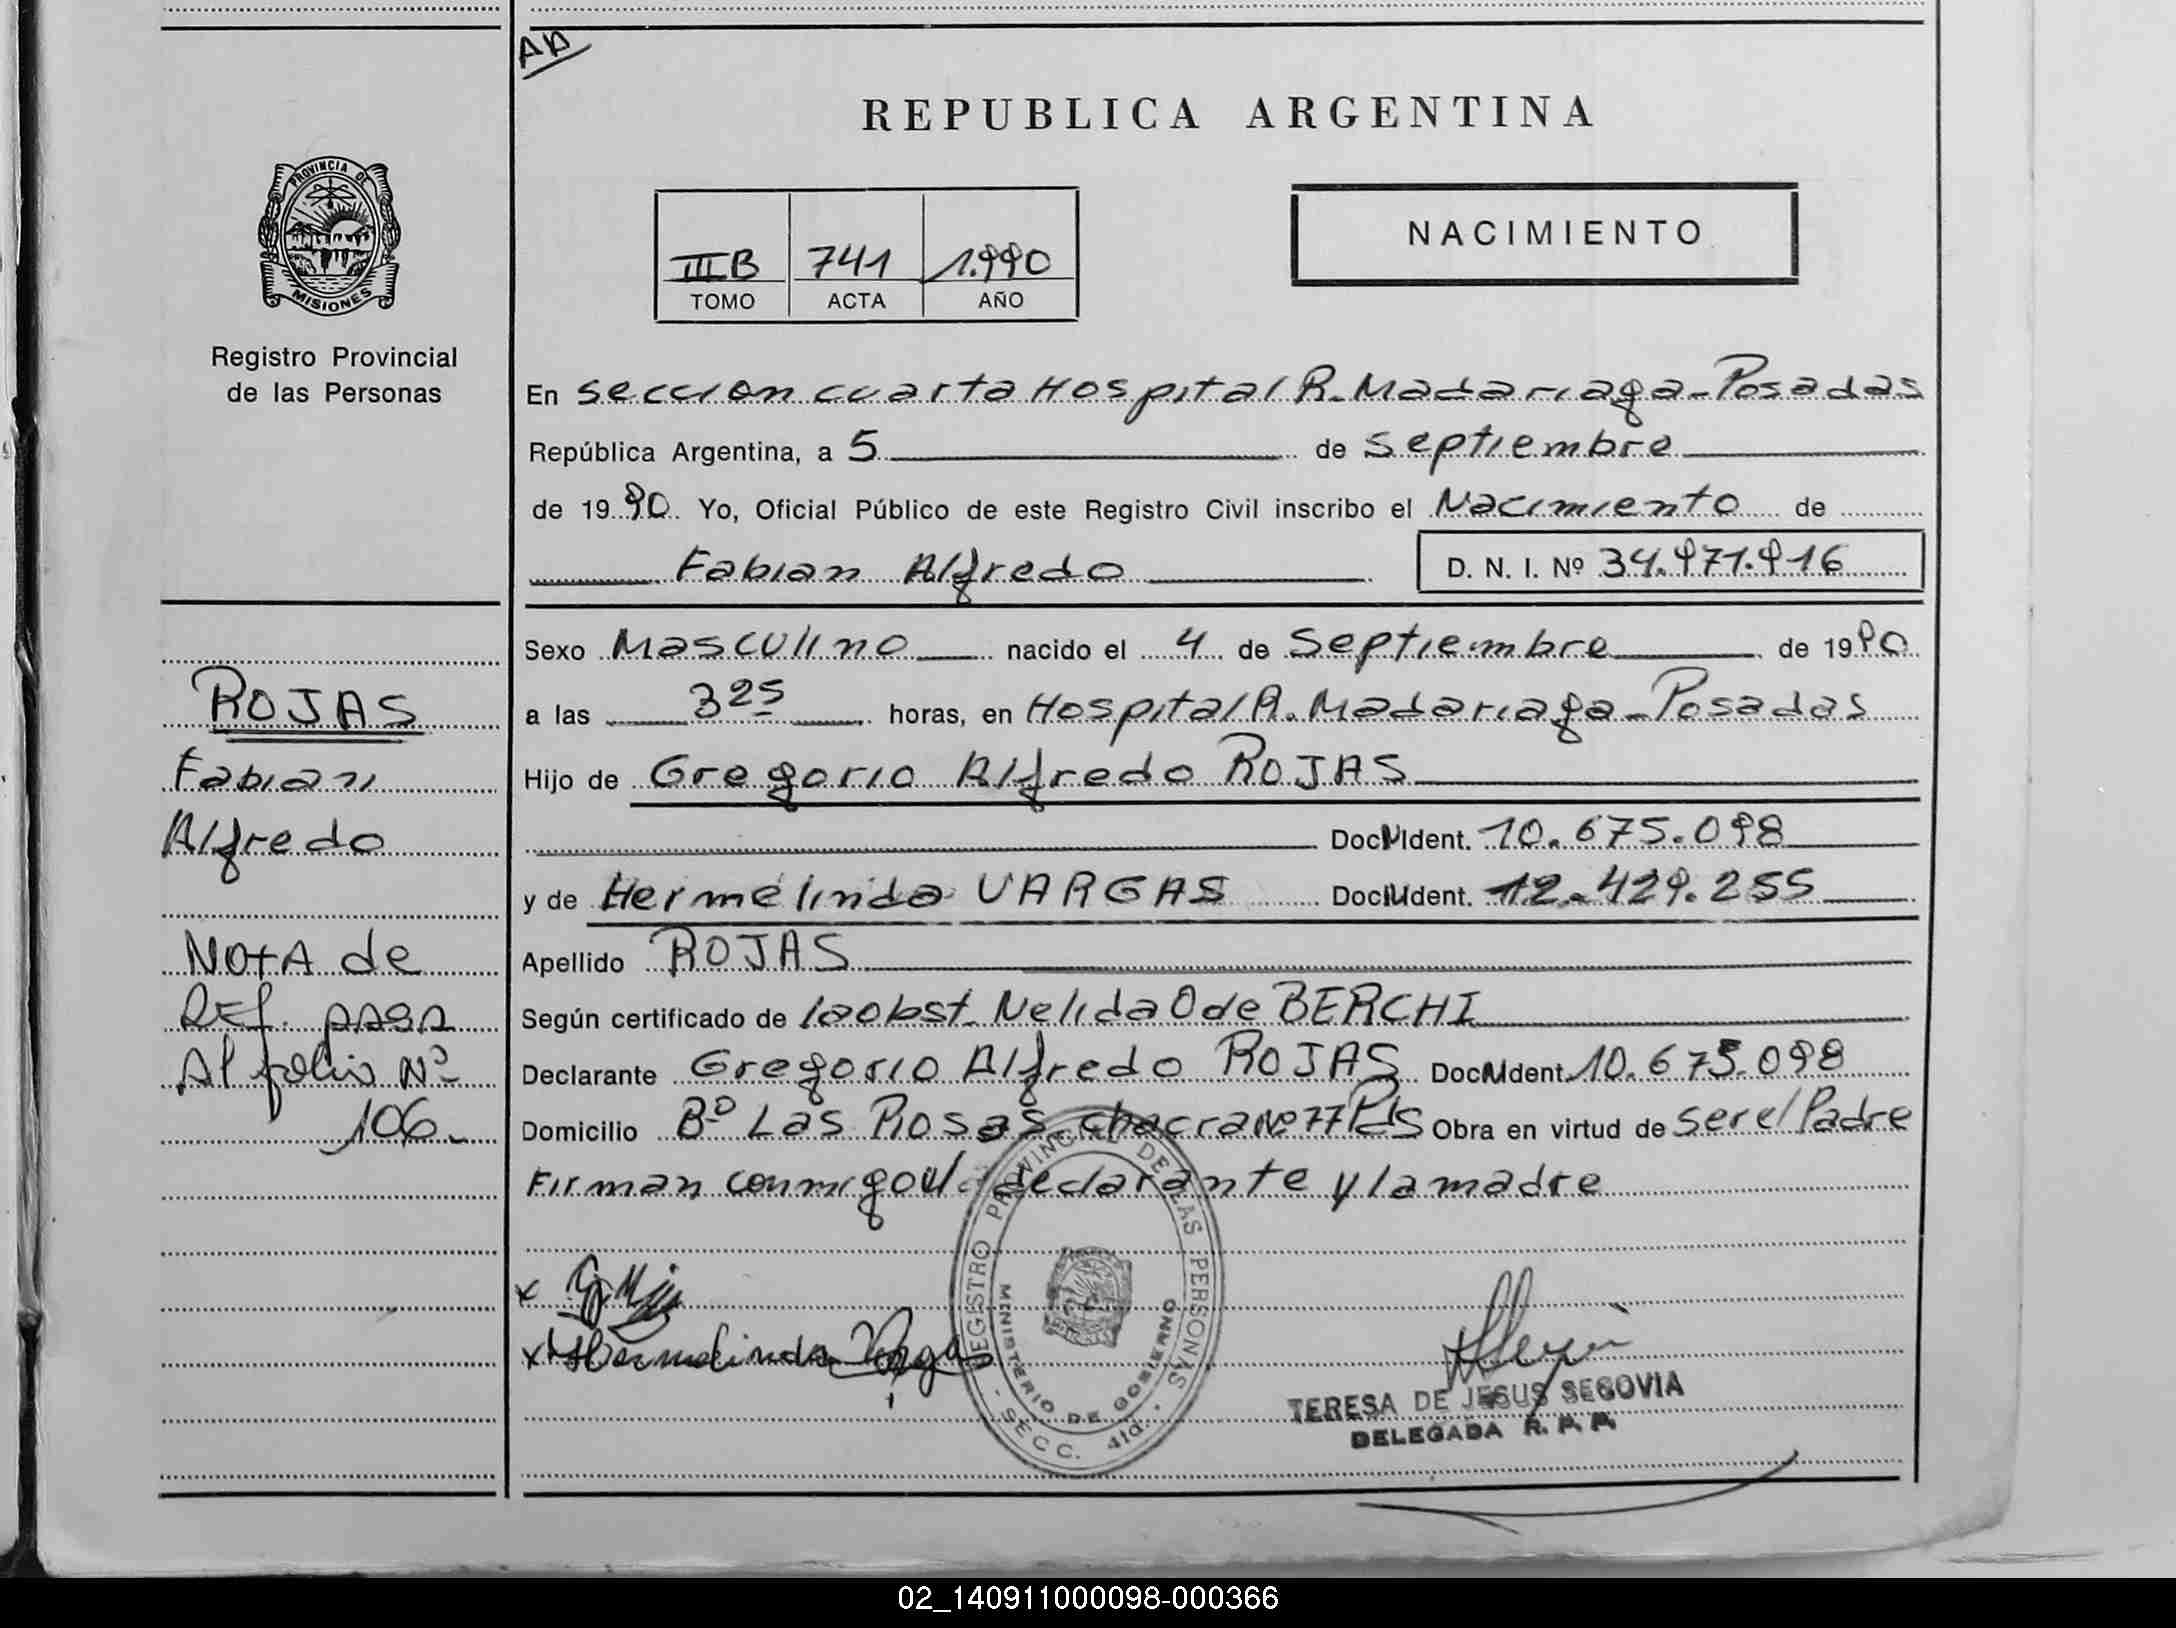 AA
REPUBLICA ARGENTINA
PROVINCIA DE
MISIONES
Registro Provincial
de las Personas
III B 741 1.990
TOMO ACTA AÑO
NACIMIENTO
En seccion cuarta Hospital R. Madariaga - Posadas
República Argentina, a 5 de septiembre
de 1990 Yo, Oficial Público de este Registro Civil inscribo el Nacimiento de
Fabian Alfredo D. N. I. Nº 34.971.916
Sexo Masculino nacido el 4 de Septiembre de 1990
a las 3 25 horas, en Hospital R. Madariaga - Posadas
Hijo de Gregorio Alfredo ROJAS
Doc. Ident. 10.675.098
y de Hermelinda VARGAS Doc. Ident. 12.429.255
Apellido ROJAS
Según certificado de la obst. Nelida O de BERCHI
Declarante Gregorio Alfredo ROJAS Doc. Ident. 10.675.098
Domicilio Bº Las Rosas chacra Nº 77 Pds Obra en virtud de ser el Padre
Firman conmigo el declarante y la madre
ROJAS
Fabian
Alfredo
NOtA de
REf. pasa
Al folio Nº
106.-
x
x Hermelinda Vargas
REGISTRO PROVINCIAL DE LAS PERSONAS
MINISTERIO DE GOBIERNO
- SECC. 4ta. -
TERESA DE JESUS SEGOVIA
DELEGADA R. P. P.
02_140911000098-000366